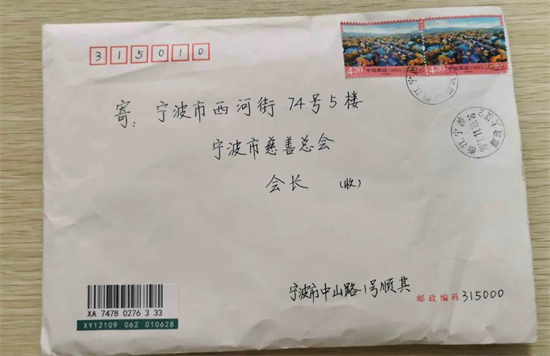 315010
4.20 中国邮政 4.20 中国邮政
寄：宁波市西河街74号5楼
宁波市慈善总会
会长（收）
宁波市中山路1号顺其
邮政编码 315000
XA 7478 0276 3 33
XY12109 062 010628